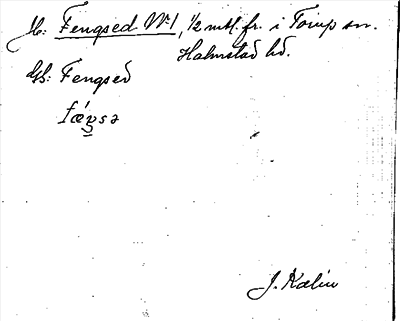 Jb: Fengsed Nr 1, 1/2 mtl. fr. i Torup sn.
Halmstad hd.
Gb: Fengsed
J. Kalén